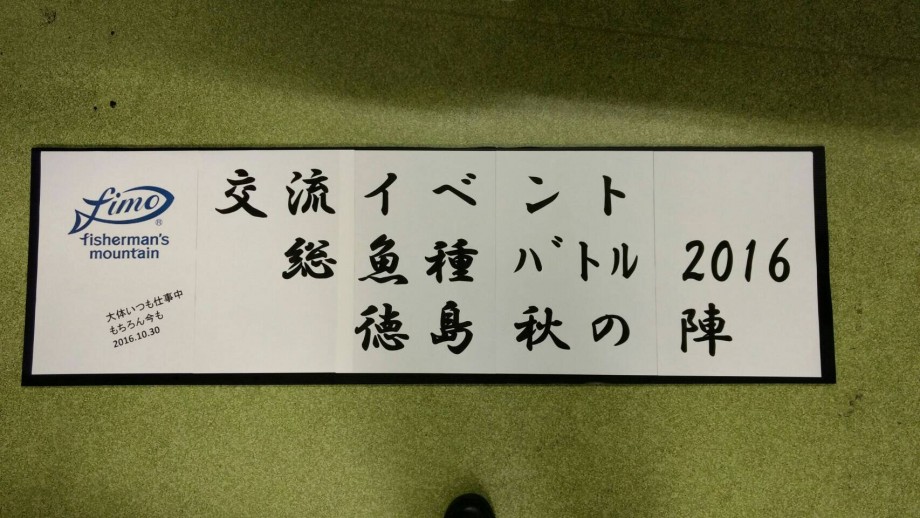 fimo®
fisherman's
mountain
大体いつも仕事中
もちろん今も
2016.10.30
交流イベント
総魚種バトル2016
徳島秋の陣